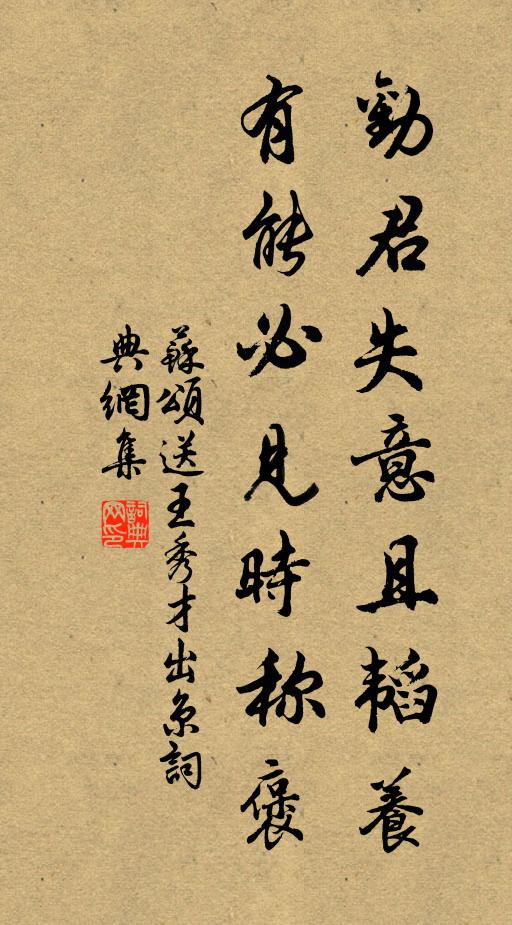 勸君失意且韜養
有能必見時称褒
蘇頌送王秀才出京詞
典網集
詞典網印